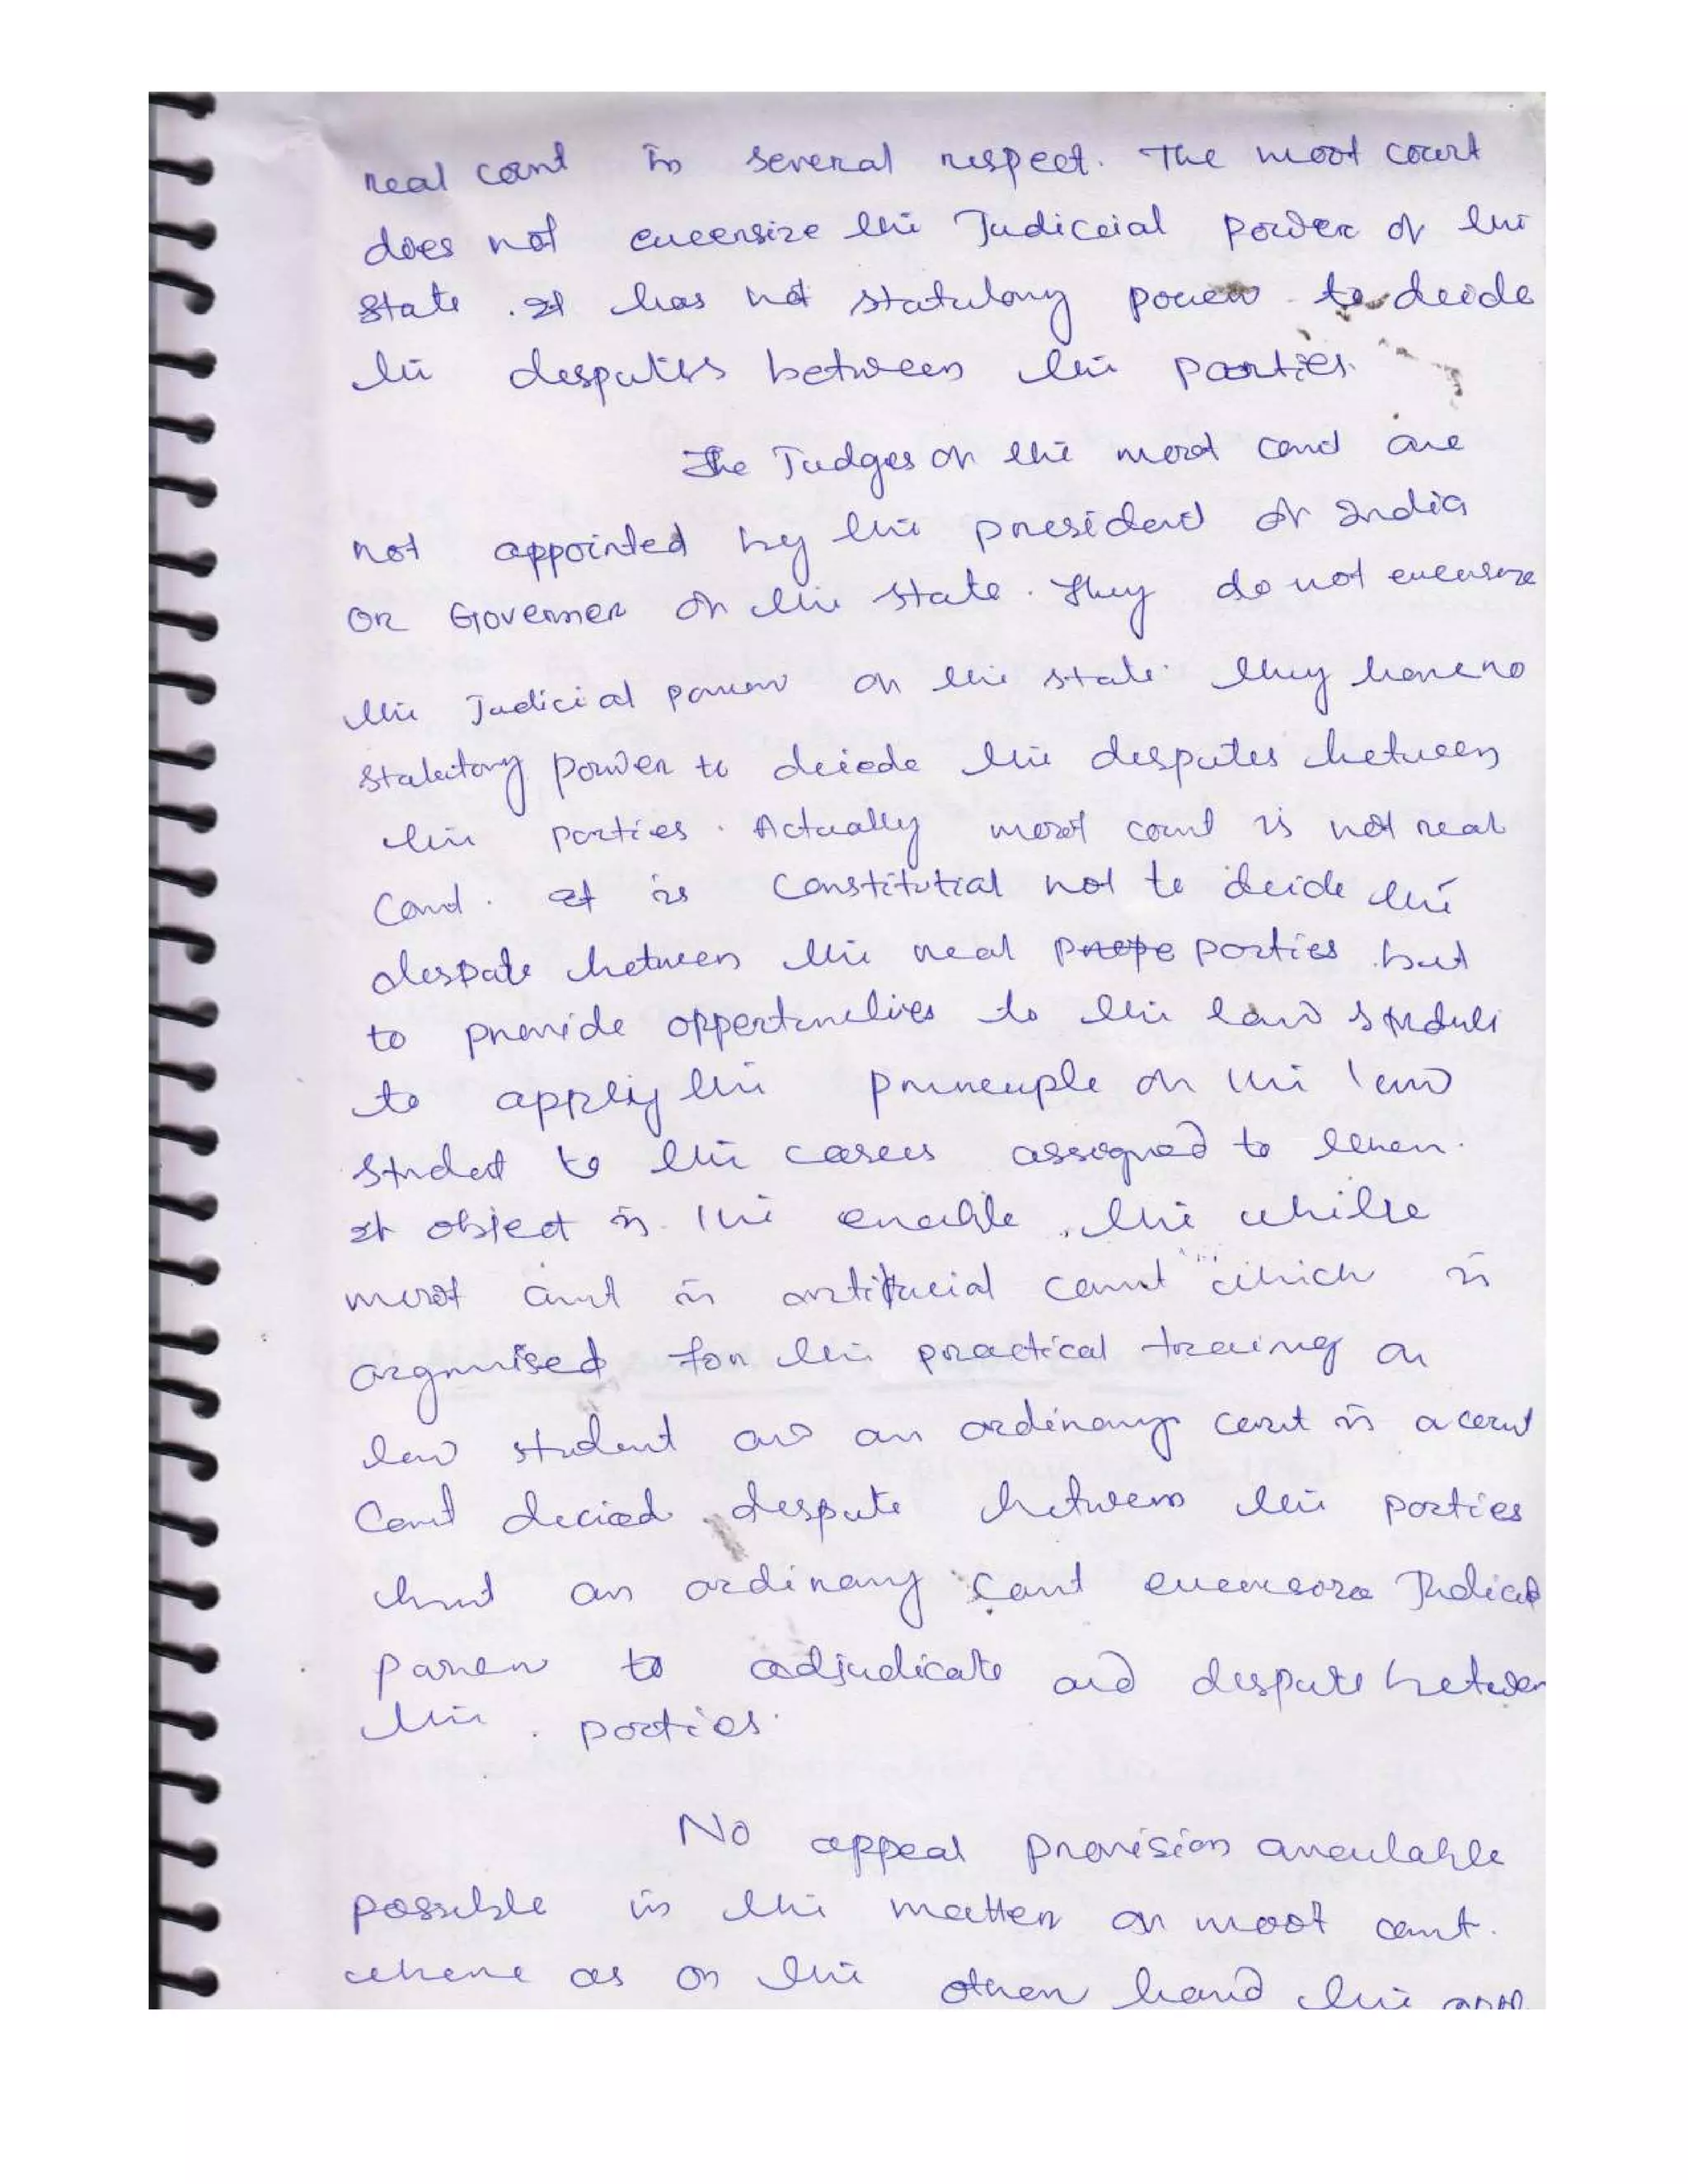 real court in several respect. The moot court
does not excersize the Judiceial power of the
State. It has not statutory power to decide
the desputies between the parties.
The Judges of the moot court are
not appointed by the president of India
or Governer of the state. They do not excersize
the Judicial power of the state. They have no
statutory power to deicde the desputes between
the parties. Actually moot court is not real
court. It is constitutial not to decide the
despate between the real parties but
to provide oppertunities to the law
to apply the of the law
student to the casees assigned to them.
It object is the enable the while
moot court is court which is
organised for the practical of
law student an ordinary court is a court
court despute between the parties
but an ordinary court Judicial
power to adjudicate and despute between
the parties.
No appeal provision
possible in the matter of moot court.
where as on the other hand the